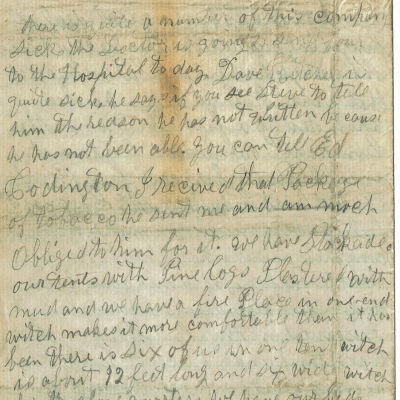 there is quite a number of this company
sick the Doctor is going to send four
to the Hospital to day Dave is
quite sick he says if you see Steve to tell
him the reason he has not written because
he has not been able you can tell Ed
Codington I recived that Package
of Tobacco he sent me and am much
Obliged to him for it. we have Stockaded
our tents with Pine logs Plastured with
mud and we have a fire Place in one end
witch makes it more comfortable than it has
been there is six of us in one tent witch
is about 12 feet long and six wide witch
we have our beds